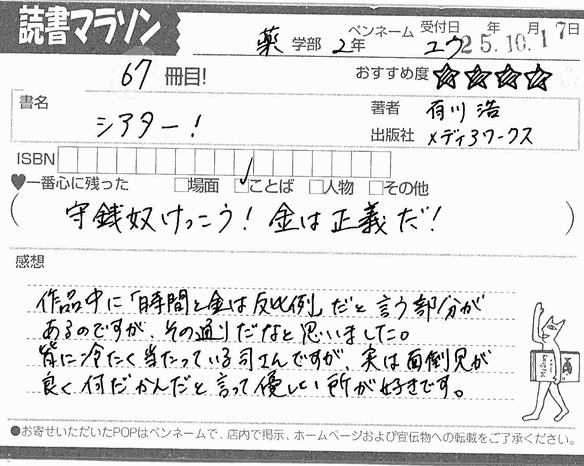 読書マラソン
薬 学部 2年 ペンネーム ユウ 受付日 25.10.17日 年 月
67 冊目! おすすめ度 ☆☆☆☆
書名 シアター! 著者 有川 浩
出版社 メディアワークス
ISBN
♥一番心に残った □場面 ☑ことば □人物 □その他
(守銭奴けっこう! 金は正義だ!)
感想
作品中に「時間と金は反比例」だと言う部分が
あるのですが、その通りだなと思いました。
皆に冷たく当たっている司さんですが、実は面倒見が
良く何だかんだと言って優しい所が好きです。
●お寄せいただいたPOPはペンネームで、店内で掲示、ホームページおよび宣伝物への転載をご了承ください。